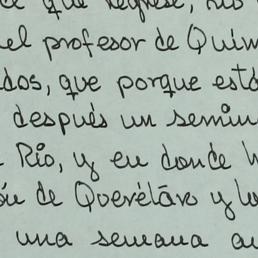 que regrese,
el profesor de Quím
dos, que porque está
después un semin
Río, y en donde
de Querétaro y lo
una semana au